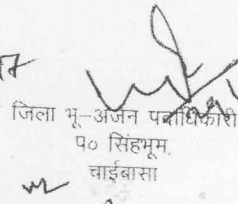 जिला भू-अर्जन पदाधिकारी
प० सिंहभूम,
चाईबासा